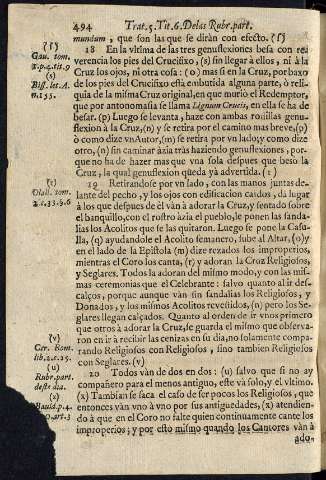 494 Trat.5.Tit.6.De las Rubr.part.
mundum, que son las que se diràn con efecto. (ſ)
(ſ)
Gau. tom.
2.p.4.tit.9
(s)
Biſſ. let. A.
n.155.
18 En la vltima de las tres genuflexiones besa con re-
verencia los pies del Crucifixo, (s) sin llegar a ellos, ni à la
Cruz los ojos, ni otra cosa: (o) mas si en la Cruz, por baxo
de los pies del Crucifixo està embutida alguna parte, ò reli-
quia de la misma Cruz original, en que murió el Redemptor,
que por antonomasia se llama Lignum Crucis, en ella se ha de
besar. (p) Luego se levanta, haze con ambas rodillas genu-
flexion à la Cruz, (n) y se retira por el camino mas breve, (p)
ò como dize vn Autor, (m) se retira por vn lado, y como dize
otro, (n) sin caminar àzia tràs haziendo genuflexiones, por-
que no ha de hazer mas que vna sola despues que besò la
Cruz, la qual genuflexion queda yà advertida. (1)
(t)
Olall. tom.
19 Retirandose por vn lado, con las manos juntas de-
lante del pecho, y los ojos con edificacion caidos, da lugar
à los que despues de èl vàn à adorar la Cruz, y sentado sobre
el banquillo, con el rostro àzia el pueblo, le ponen las sanda-
lias los Acolitos que se las quitaron. Luego se pone la Casu-
lla, (q) ayudandole el Acolito semanero, sube al Altar, (o) y
en el lado de la Epistola (m) dize rezados los improperios,
mientras el Coro los canta, (t) y adoran la Cruz Religiosos,
y Seglares. Todos la adoran del mismo modo, y con las mis-
mas ceremonias que el Celebrante: salvo quanto al ir des-
calços, porque aunque vàn sin sandalias los Religiosos, y
Donados, y los mismos Acolitos revestidos, (n) pero los Se-
glares llegan calçados. Quanto al orden de ir vnos primero
que otros à adorar la Cruz, se guarda el mismo que observa-
ron en ir à recibir las cenizas en su dia, no solamente compa-
rando Religiosos con Religiosos, sino tambien Religiosos
con Seglares. (v)
(v)
Cer. Rom.
lib.2.c.25.
(u)
Rubr. part.
deste dia.
(x)
Bauld. p.4.
20 Todos vàn de dos en dos: (u) salvo que si no ay
compañero para el menos antiguo, este và solo, y el vltimo.
(x) Tambien se saca el caso de ser pocos los Religiosos, que
entonces vàn vno à vno por sus antiguedades, (x) atendien-
do à que en el Coro no falte quien continuamente cante los
improperios; y por esto mismo quando los Cantores vàn à
ado-